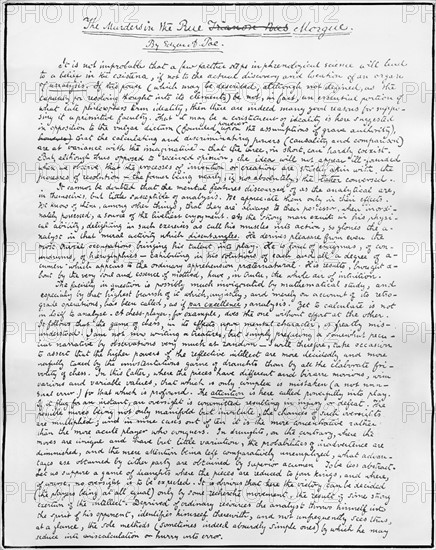 The Murders in the Rue Trianon Bas Morgue.
By Edgar A. Poe.
It is not improbable that a few farther steps in phrenological science will lead
to a belief in the existence, if not to the actual discovery and location of an organ
of analysis. If this power (which may be described, although not defined, as the
capacity for resolving thought into its elements) be not, in fact, an essential portion of
what late philosophers term ideality, then there are indeed many good reasons for suppo-
sing it a primitive faculty. That it may be a constituent of ideality is here suggested
in opposition to the vulgar dictum (founded, however, upon the assumptions of grave authority),
that the calculating and discriminating powers (causality and comparison)
are at variance with the imaginative — that the three, in short, can hardly coexist.
But, although thus opposed to received opinion, the idea will not appear ill-founded
when we observe that the processes of invention or creation are strictly akin with the
processes of resolution — the former being nearly, if not absolutely, the latter conversed.
It cannot be doubted that the mental features discoursed of as the analytical are,
in themselves, but little susceptible of analysis. We appreciate them only in their effects.
We know of them, among other things, that they are always to their possessor, when inordi-
nately possessed, a source of the liveliest enjoyment. As the strong man exults in his physi-
cal ability, delighting in such exercises as call his muscles into action, so glories the a-
nalyst in that moral activity which disentangles. He derives pleasure from even the
most trivial occupations bringing his talent into play. He is fond of enigmas, of co-
nundrums, of hieroglyphics — exhibiting in his solutions of each and all a degree of a-
cumen which appears to the ordinary apprehension præternatural. His results, brought a-
bout by the very soul and essence of method, have, in truth, the whole air of intuition.
The faculty in question is possibly much invigorated by mathematical study, and
especially by that highest branch of it which, unjustly, and merely on account of its retro-
grade operations, has been called, as if par excellence, analysis. Yet to calculate is not
in itself to analyse. A chess-player, for example, does the one without effort at the other.
It follows that the game of chess, in its effects upon mental character, is greatly mis-
understood. I am not now writing a treatise, but simply prefacing a somewhat pecu-
liar narrative by observations very much at random — I will, therefore, take occasion
to assert that the higher powers of the reflective intellect are more decidedly and more
usefully tasked by the unostentatious game of draughts than by all the elaborate frivo-
lity of chess. In this latter, where the pieces have different and bizarre motions, with
various and variable values, that which is only complex is mistaken (a not unu-
sual error) for that which is profound. The attention is here called powerfully into play.
If it flag for an instant, an oversight is committed, resulting in injury or defeat. The
possible moves being not only manifold but involute, the chances of such oversights
are multiplied; and in nine cases out of ten it is the more concentrative rather
than the more acute player who conquers. In draughts, on the contrary, where the
moves are unique and have but little variation, the probabilities of inadvertence are
diminished, and the mere attention being left comparatively unemployed, what advan-
tages are obtained by either party are obtained by superior acumen. To be less abstract —
Let us suppose a game of draughts where the pieces are reduced to four kings, and where,
of course, no oversight is to be expected. It is obvious that here the victory can be decided
(the players being at all equal) only by some recherché movement, the result of some strong
exertion of the intellect. Deprived of ordinary resources, the analyst throws himself into
the spirit of his opponent, identifies himself therewith, and not unfrequently sees thus,
at a glance, the sole methods (sometimes indeed absurdly simple ones) by which he may
seduce into miscalculation or hurry into error.